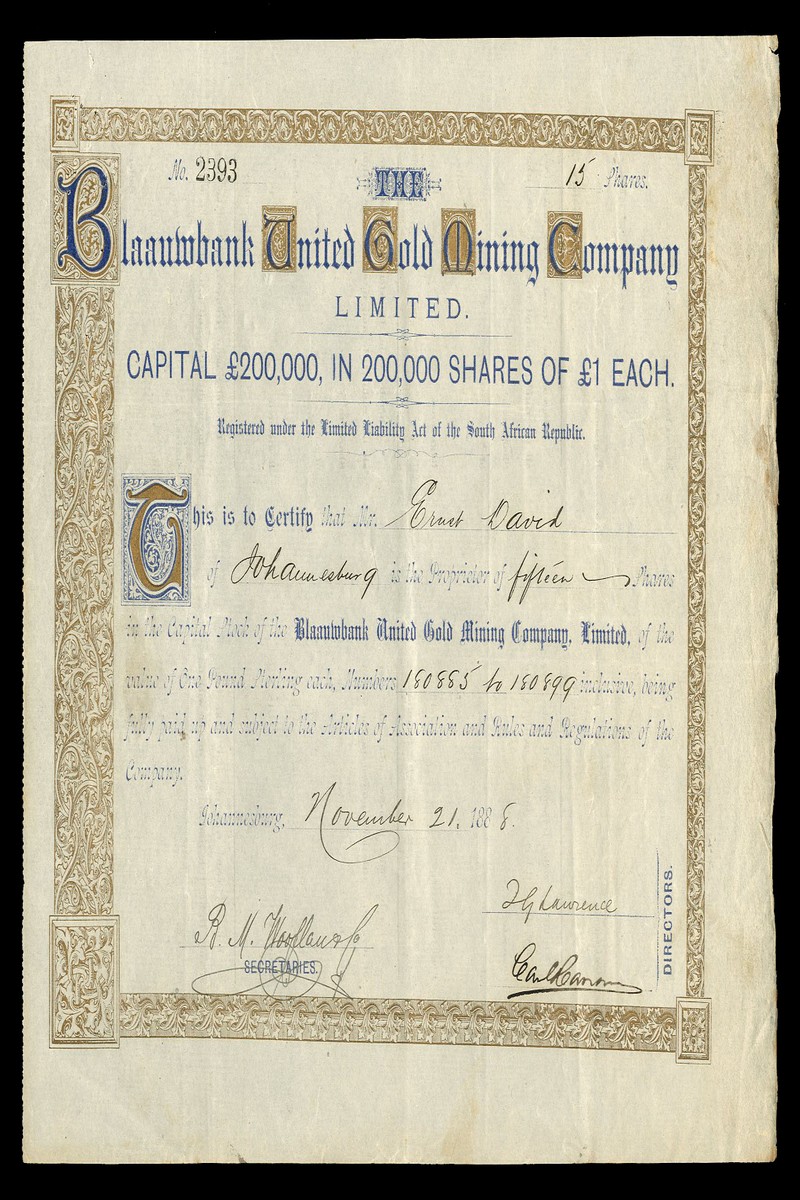 No. 2393
15 Shares.
THE
Blaauwbank United Gold Mining Company
LIMITED.
CAPITAL £200,000, IN 200,000 SHARES OF £1 EACH.
Registered under the Limited Liability Act of the South African Republic.
This is to Certify that Mr. Ernst David
of Johannesburg is the Proprietor of fifteen Shares
in the Capital Stock of the Blaauwbank United Gold Mining Company, Limited, of the
value of One Pound Sterling each, Numbers 180885 to 180899 inclusive, being
fully paid up and subject to the Articles of Association and Rules and Regulations of the
Company.
Johannesburg, November 21, 1888.
Lawrence
R. M.
SECRETARIES.
Carl
DIRECTORS.